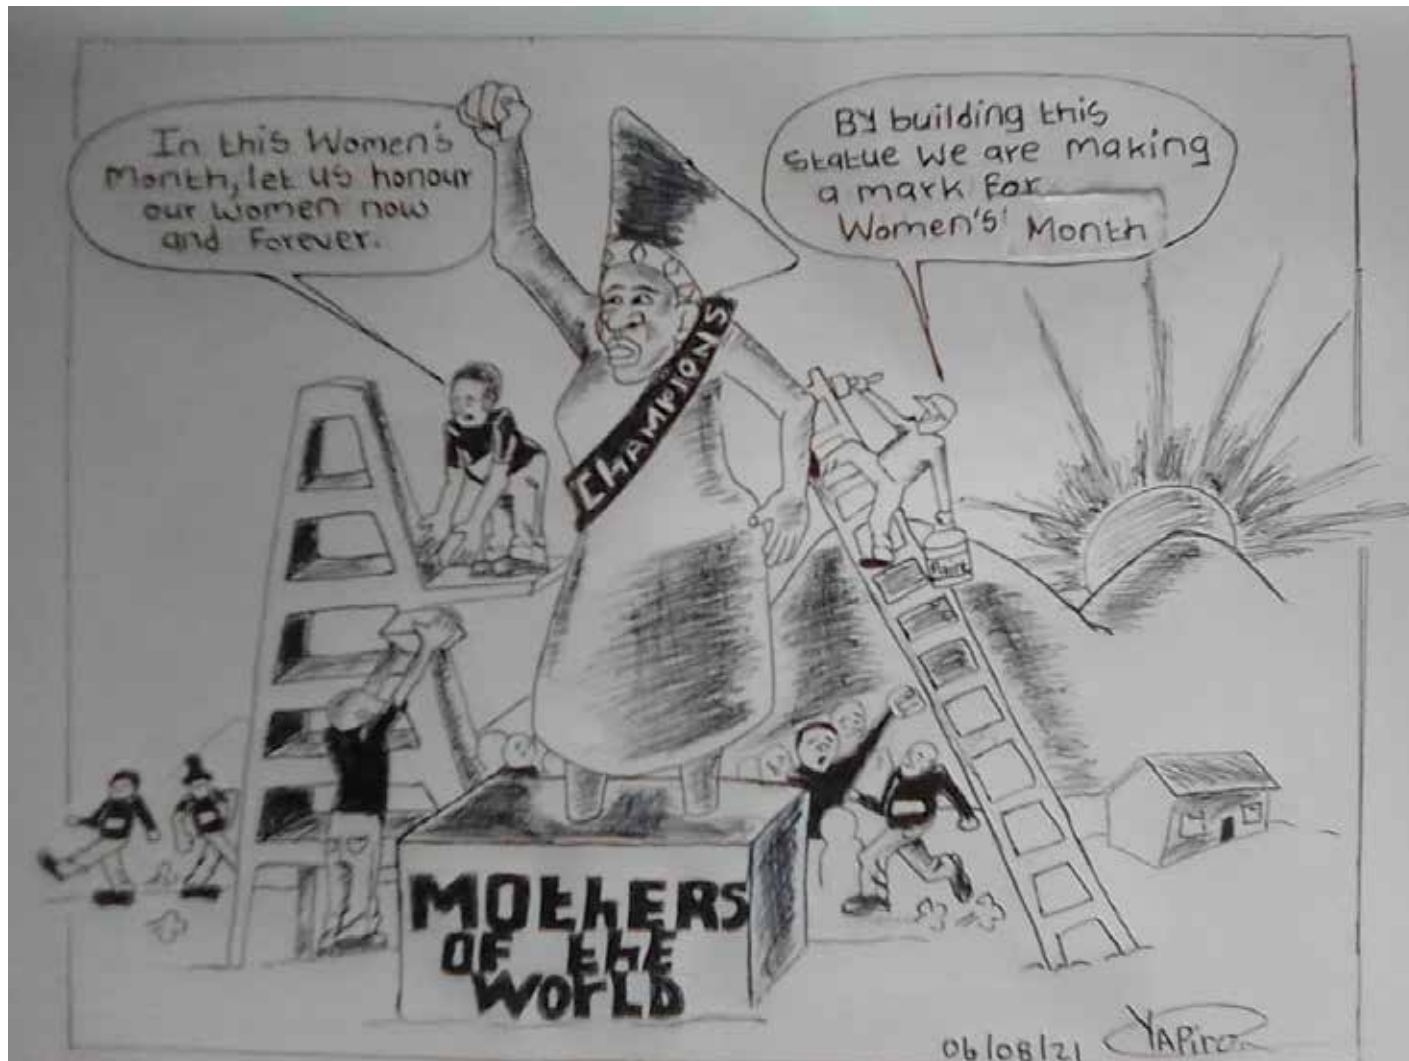 In this Women's
Month, let us honour
our women now
and Forever.
By building this
statue we are making
a mark for
Women's' Month
CHAMPIONS
Paint
MOthERS
OF thE
WORLD
06/08/21